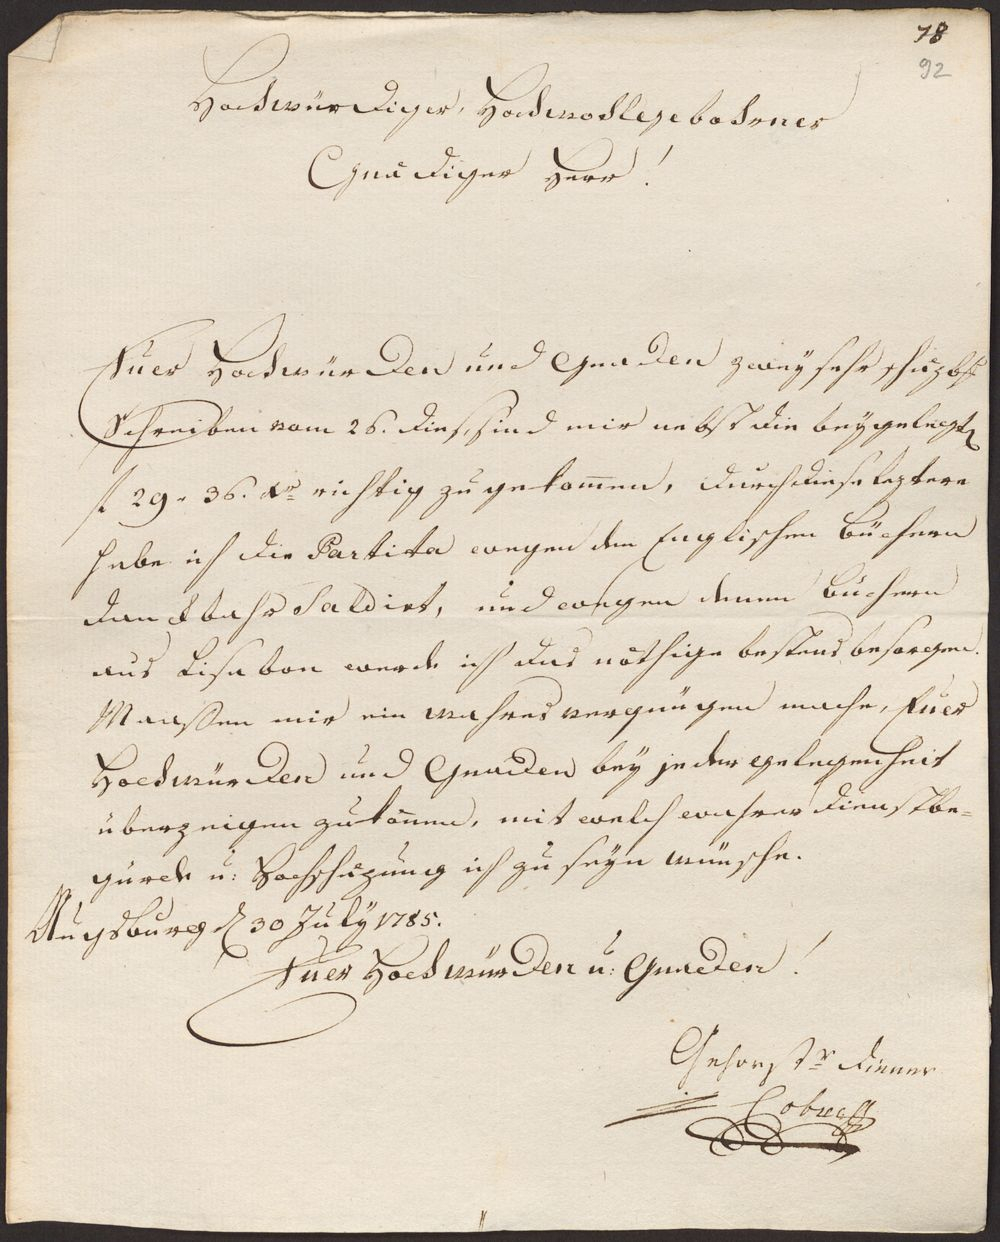 78
92
Hochwürdiger, Hochwohlgebohrner
Gnädiger Herr!
Euer Hochwürden und Gnaden zwey sehr schäzbste
Schreiben vom 26. dies, sind mir nebst die beygelegte
f 29. 36. Xr richtig zugekom̄en, durch diese leztere
habe ich die Partita wegen den Englischen Büchern
danckbahr Saldirt, und wegen denen Büchern
aus Lisabon werde ich das nöthige bestens besorgen.
Maassen mir ein wahres vergnügen mache, Euer
Hochwürden und Gnaden bey jeder gelegenheit
überzeigen zu kön̄en, mit welch wahrer dienstbe-
gürde u: Hochschäzung ich zu seyn wünsche.
Augsburg d 30 July 1785.
Euer Hochwürden u: Gnaden!
Gehorsstr diener
Cobres